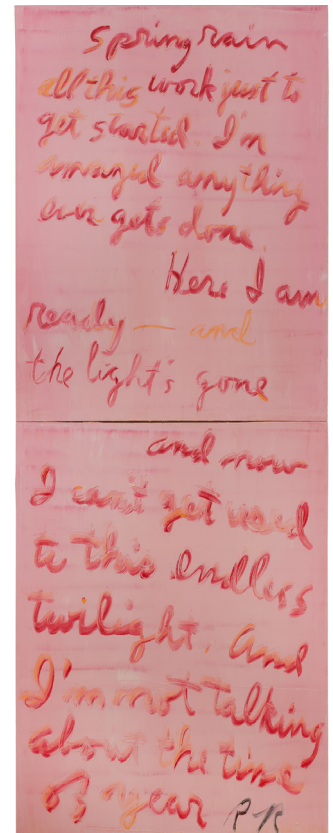 Spring rain
all this work just to
get started. I'm
amazed anything
ever gets done.
Here I am
ready — and
the light's gone
and now
I can't get used
to this endless
twilight. And
I'm not talking
about the time
of year RR